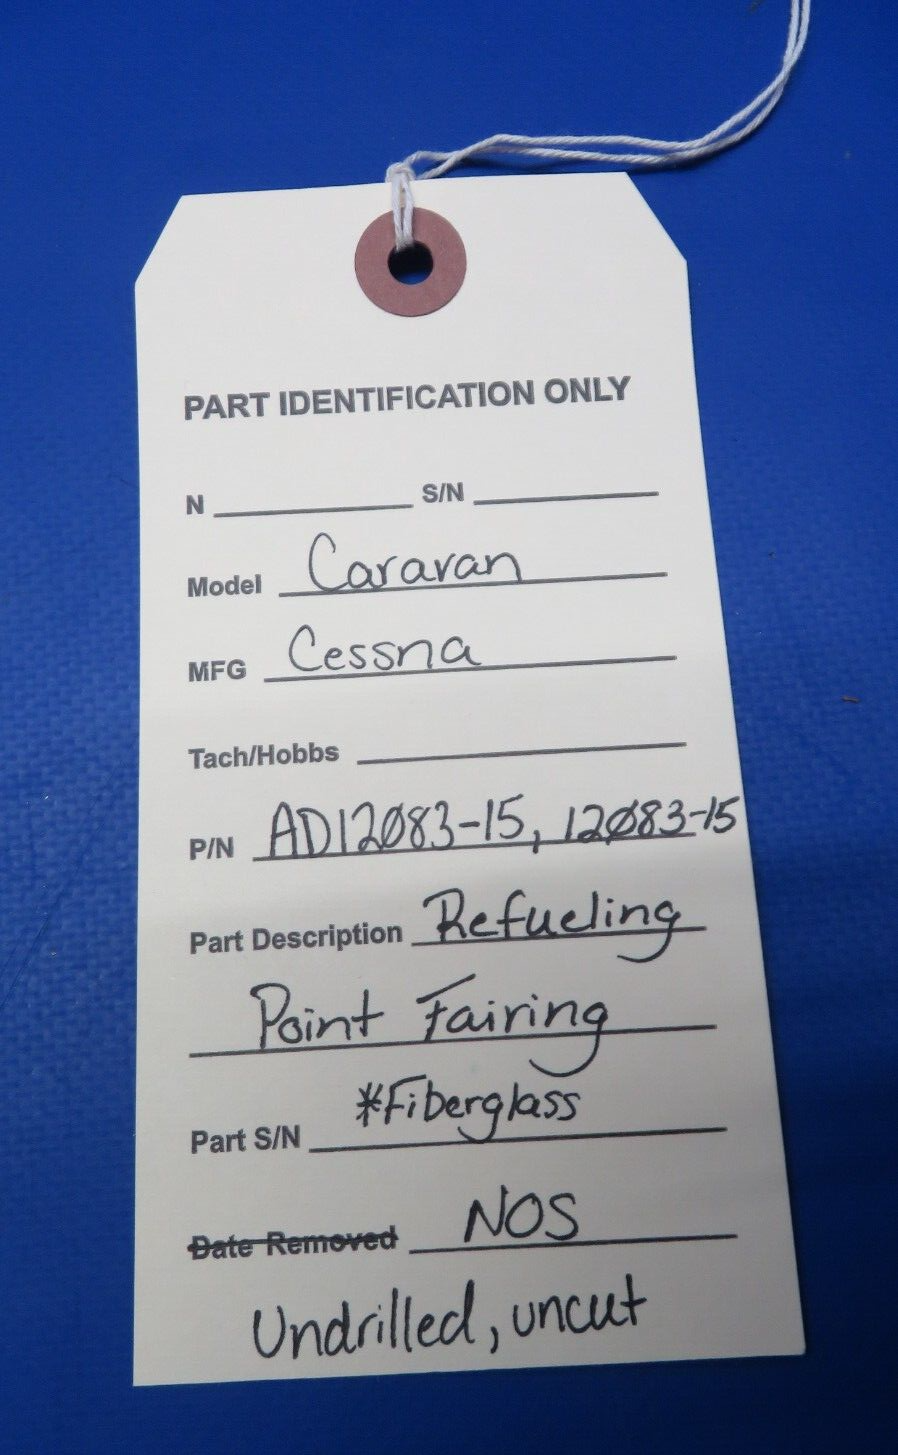 PART IDENTIFICATION ONLY
N ____________ S/N ____________
Model Caravan
MFG Cessna
Tach/Hobbs ____________
P/N AD12083-15, 12083-15
Part Description Refueling
Point Fairing
*Fiberglass
Part S/N ____________
Date Removed NOS
Undrilled, uncut